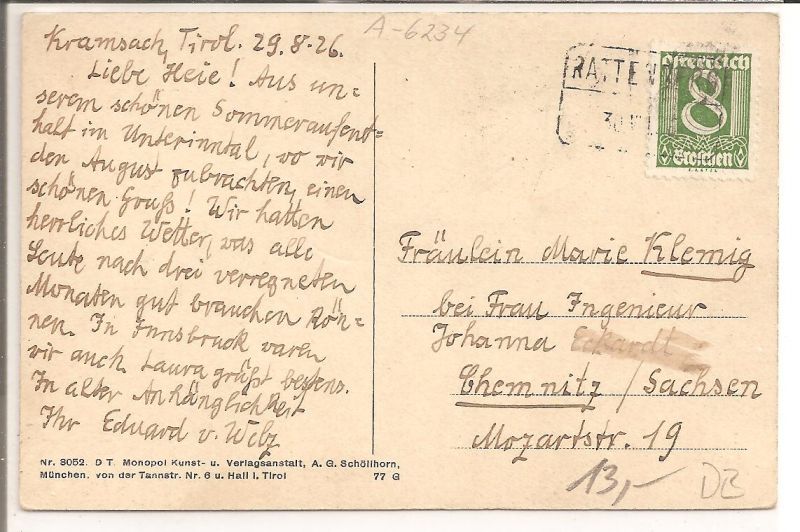 Kramsach, Tirol. 29.8.26.
Liebe Heie! Aus un=
serem schönen Sommeraufent=
halt im Unterinntal, wo wir
den August zubrachten, einen
schönen Gruß! Wir hatten
herrliches Wetter, was alle
Leute nach drei verregneten
Monaten gut brauchen kön=
nen. In Innsbruck waren
wir auch. Laura grüßt bestens.
In alter Anhänglichkeit
Ihr Eduard v. Welz
Nr. 3052. D T. Monopol Kunst- u. Verlagsanstalt, A. G. Schöllhorn,
München, von der Tannstr. Nr. 6 u. Hall i. Tirol 77 G
A-6234
RATTEN
30
Österreich
8
Groschen
Fräulein Marie Klemig
bei Frau Ingenieur
Johanna Eckardt
Chemnitz / Sachsen
Mozartstr. 19
13,-
DB